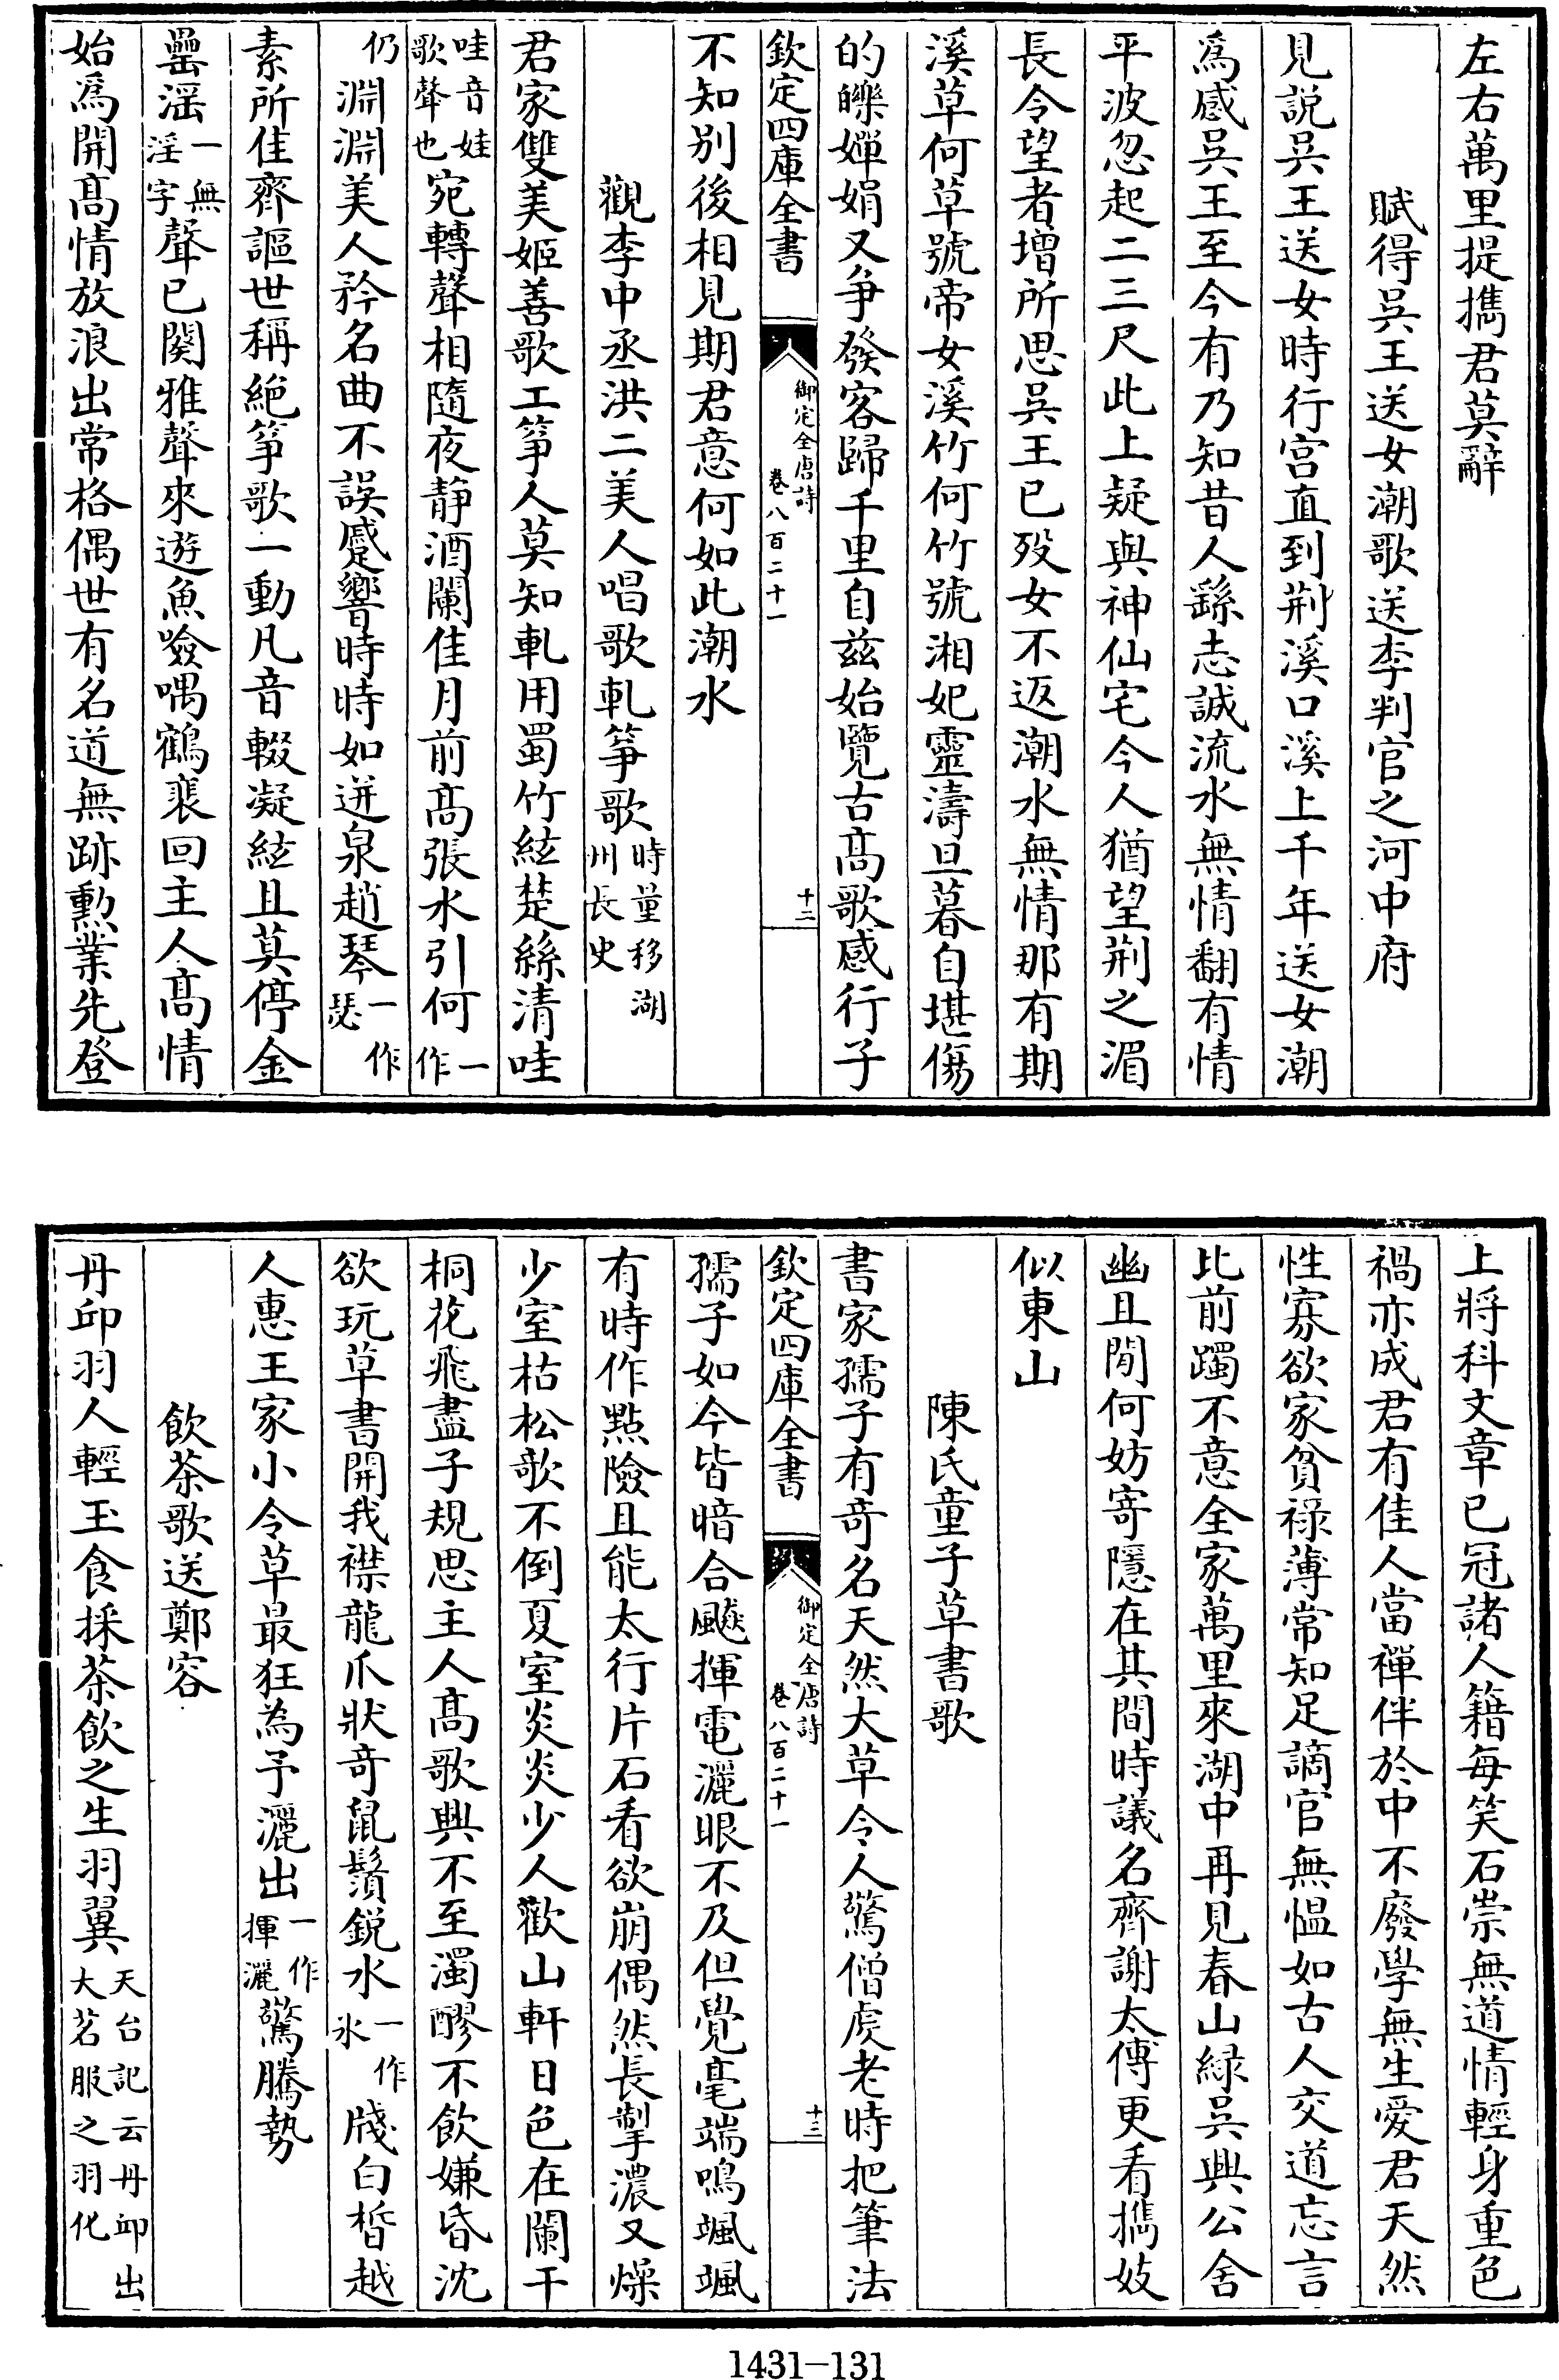 左右萬里提㩦君莫辭
賦得吳王送女潮歌送李判官之河中府
見説吳王送女時行宫直到荆溪口溪上千年送女潮
爲感吳王至今有乃知昔人繇志誠流水無情翻有情
平波忽起二三尺此上疑與神仙宅今人猶望荆之湄
長令望者增所思吳王已殁女不返潮水無情那有期
溪草何草號帝女溪竹何竹號湘妃靈濤旦暮自堪傷
的皪嬋娟又爭發客歸千里自兹始覽古髙歌感行子
欽定四庫全書
御定全唐詩
卷八百二十一
十二
不知别後相見期君意何如此潮水
觀李中丞洪二美人唱歌軋筝歌時量移湖州長史
君家雙美姬善歌工筝人莫知軋用蜀竹絃楚絲清哇
哇音娃歌聲也宛轉聲相隨夜静酒闌佳月前髙張水引何一作
仍淵淵美人矜名曲不誤蹙響時時如迸泉趙琴一作瑟
素所佳齊謳世稱絶筝歌一動凡音輟凝絃且莫停金
罍滛一無淫字聲已闋雅聲來遊魚噞喁鶴裴回主人髙情
始爲開髙情放浪出常格偶世有名道無跡勲業先登
上將科文章已冠諸人籍每笑石崇無道情輕身重色
禍亦成君有佳人當禪伴於中不廢學無生愛君天然
性寡欲家貧禄薄常知足謫官無愠如古人交道忘言
比前躅不意全家萬里來湖中再見春山緑吳興公舍
幽且閒何妨寄隱在其間時議名齊謝太傅更看㩦妓
似東山
陳氏童子草書歌
書家孺子有奇名天然大草令人驚僧虔老時把筆法
欽定四庫全書
御定全唐詩
卷八百二十一
十三
孺子如今皆暗合飈揮電灑眼不及但覺毫端鳴颯颯
有時作點險且能太行片石看欲崩偶然長掣濃又燥
少室枯松欹不倒夏室炎炎少人歡山軒日色在闌干
桐花飛盡子規思主人髙歌興不至濁醪不飲嫌昏沈
欲玩草書開我襟龍爪狀奇鼠鬚鋭水一作氷牋白晳越
人惠王家小令草最狂為予灑出一作揮灑驚騰勢
飲茶歌送鄭容
丹邱羽人輕玉食採茶飲之生羽翼天台記云丹邱出大茗服之羽化
1431—131